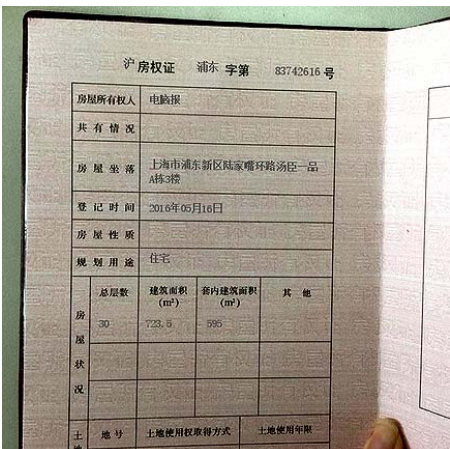 沪 房权证 浦东 字第 83742616 号
房屋所有权人 电脑报
共有情况
房屋坐落 上海市浦东新区陆家嘴环路汤臣一品
A栋3楼
登记时间 2016年05月16日
房屋性质
规划用途 住宅
房屋状况
总层数 建筑面积 套内建筑面积 其他
(m²) (m²)
30 723.5 595
土地
地号 土地使用权取得方式 土地使用年限